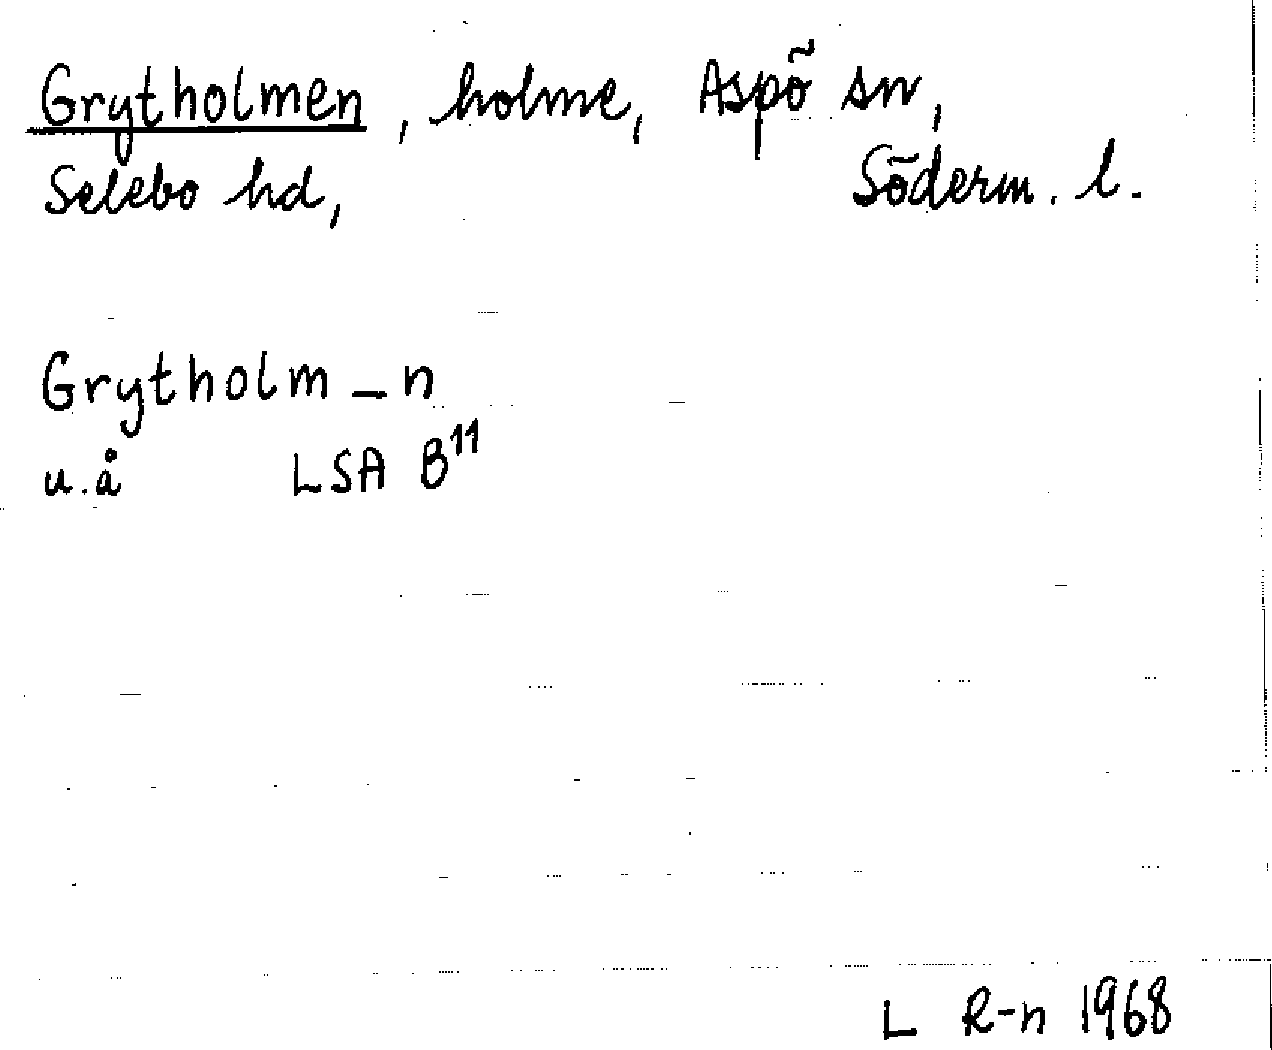 Grytholmen, holme, Aspö sn,
Selebo hd, Söderm. l.
Grytholm_n
u.å LSA B¹¹
L R-n 1968